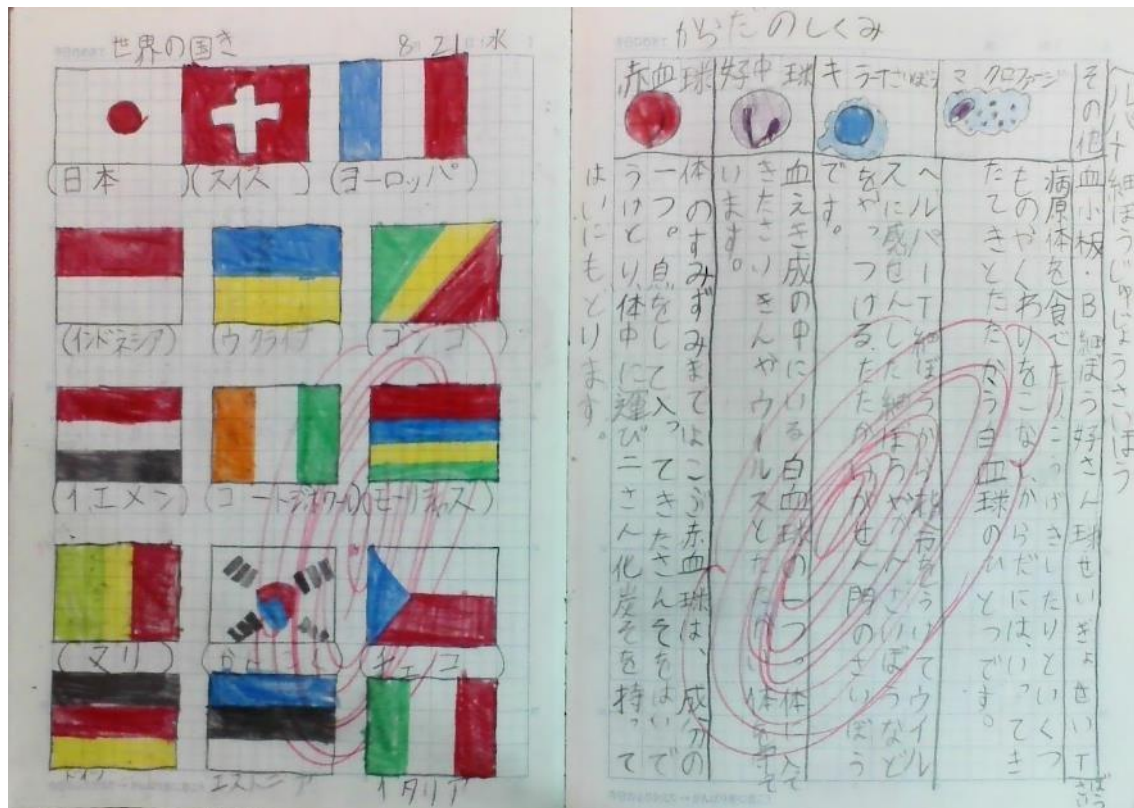 世界の国き
8 21 水
(日本)
(スイス)
(ヨーロッパ)
(インドネシア)
(ウクライナ)
(コンゴ)
(イエメン)
(コートジボワール)
(モーリシャス)
(マリ)
(かんこく)
(チェコ)
ドイツ
エストニア
イタリア
からだのしくみ
ヘルパーT細ほうじゅじょうさいぼう
その他 血小板・B細ぼう好さん球せいぎょせいT
さいぼう
マクロファージ
病原体を食べたりこうげきしたりといくつ
ものやくわりをこなし、からだには、いってき
たてきとたたかう白血球のひとつです。
キラーTさいぼう
ヘルパーT細ぼうから指令をうけてウイル
スに感せんした細ぼうやがんさいぼうなど
をやっつける、たたかい
です。
好中球
血えき成の中にいる白血球の一つ。体に入って
きたさいきんやウイルスとたたかい体を守って
います。
赤血球
体のすみずみまではこぶ赤血球は、成分の
一つ。息をして入ってきたさんそをはいで
うけとり、体中に運び二さん化炭そを持って
はいにもどります。